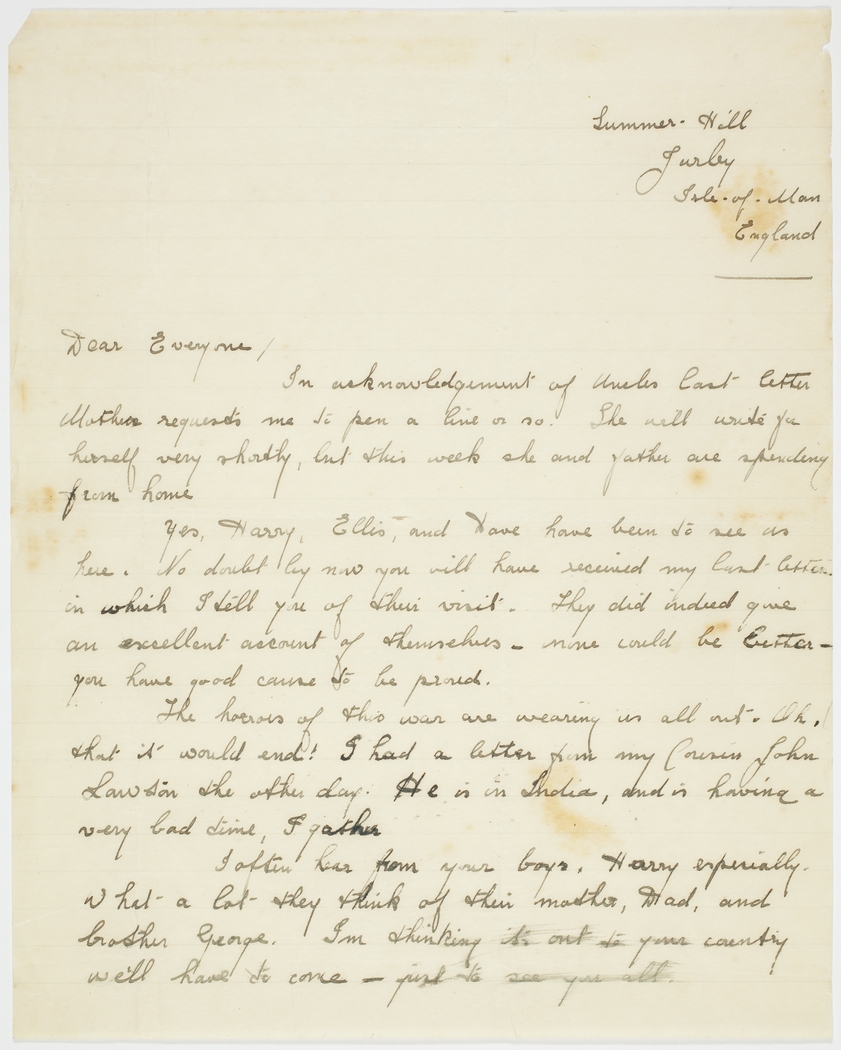 Summer-Hill
Jurby
Isle-of-Man
England
Dear Everyone/
In acknowledgement of Uncles last letter
Mother requests me to pen a line or so. She will write
herself very shortly, but this week she and father are spending
from home
Yes, Harry, Ellis, and Dave have been to see us
here. No doubt by now you will have received my last letter
in which I tell you of their visit. They did indeed give
an excellent account of themselves - none could be better -
you have good cause to be proud.
The horrors of this war are wearing us all out. Oh,!
that it would end! I had a letter from my Cousin John
Lawson the other day. He is in India, and is having a
very bad time, I gather
I often hear from your boys. Harry especially.
What a lot they think of their mother, Dad, and
brother George. I'm thinking its out to your country
we'll have to come - just to see you all.